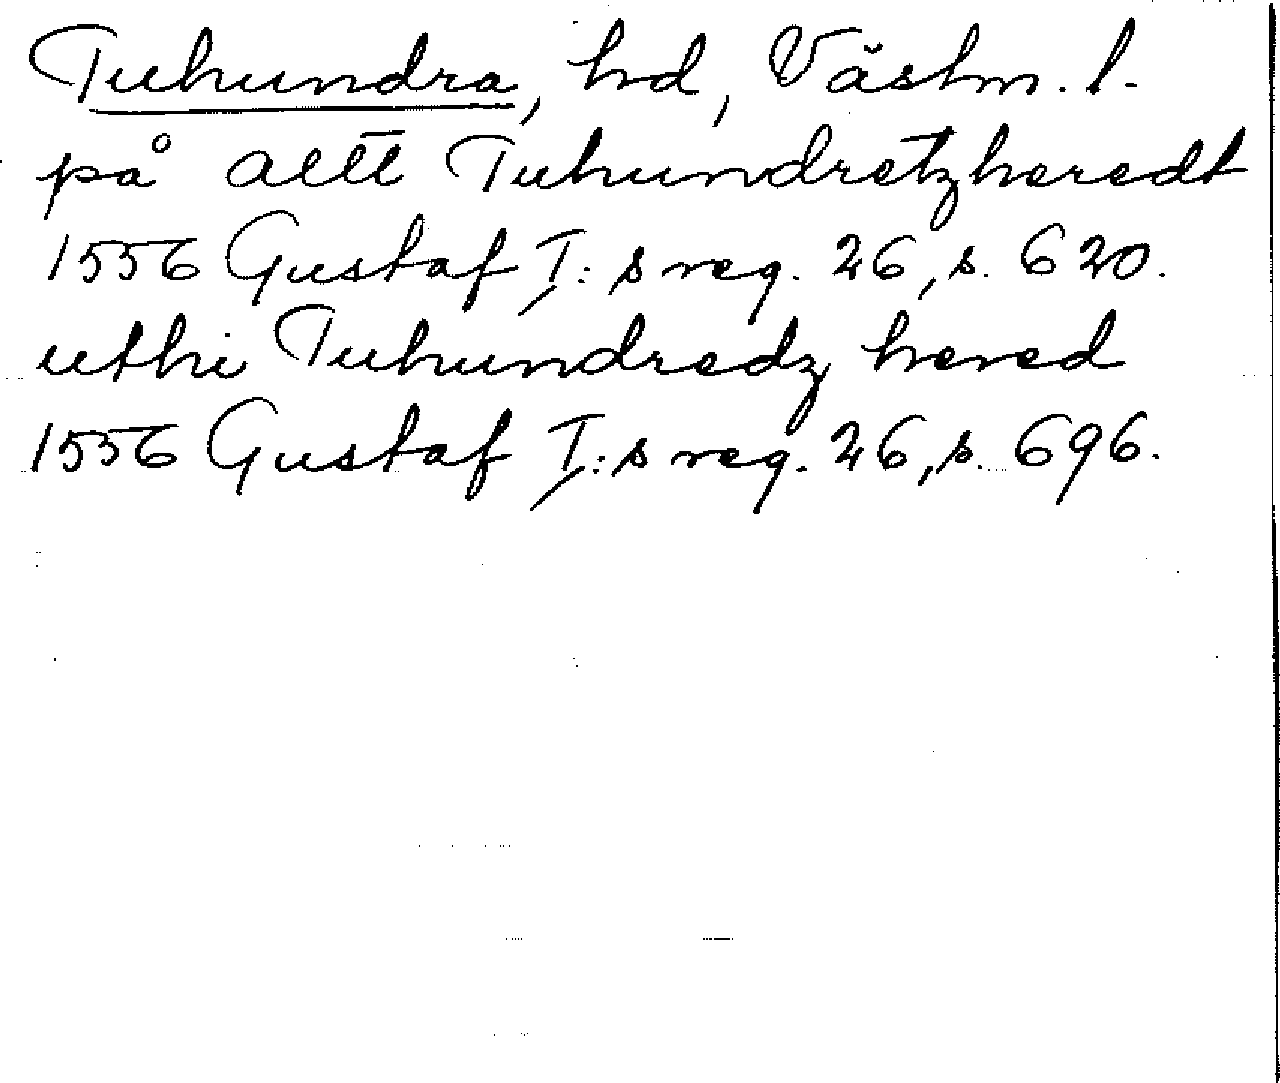 Tuhundra, hd, Västm. l.
på alltt Tuhundretzheredt
1556 Gustaf I:s reg. 26, s. 620.
uthi Tuhundredz hered
1556 Gustaf I:s reg. 26, s. 696.